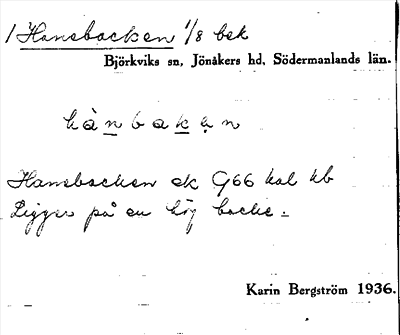 1 Hansbacken 1/8 bebk
Björkviks sn, Jönåkers hd, Södermanlands län.
hànbakən
Hansbacken ek G66 kal hb
Ligger på en hög backe.
Karin Bergström 1936.